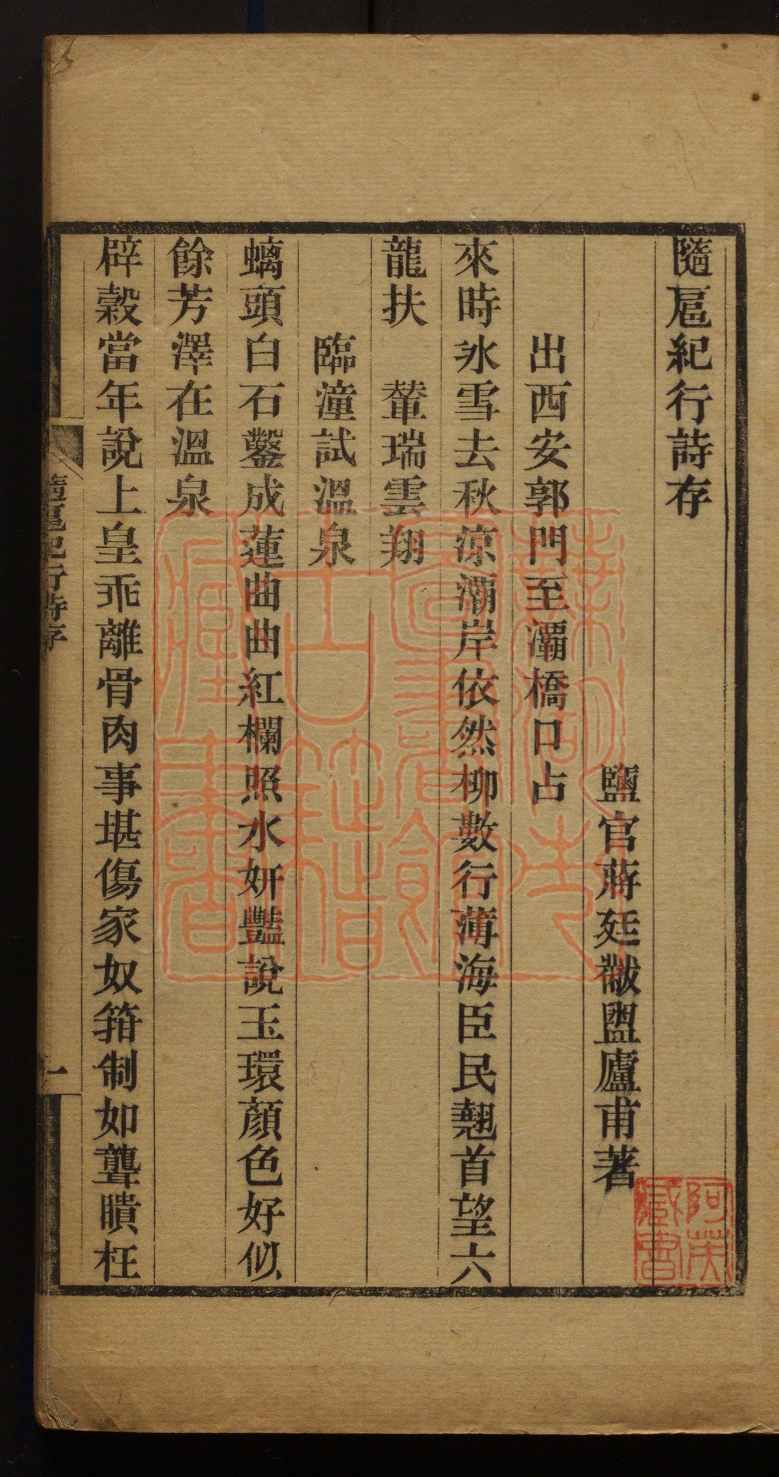 隨扈紀行詩存
鹽官蔣廷黻盥廬甫著
出西安郭門至灞橋口占
來時氷雪去秋涼灞岸依然柳數行薄海臣民翹首望六
龍扶　輦瑞雲翔
臨潼試溫泉
螭頭白石鑿成蓮曲曲紅欄照水妍豔說玉環顏色好似
餘芳澤在溫泉
辟穀當年說上皇乖離骨肉事堪傷家奴箝制如聾瞶枉
隨扈紀行詩存
一
阿英
藏書